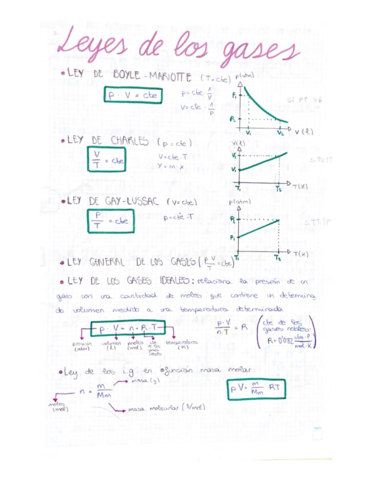 Leyes de los gases
• LEY DE BOYLE-MARIOTTE (T=cte)
p · V = cte
p = cte 1/V
V = cte 1/p
p(atm)
P₁
P₂
V₁ V₂ V (l)
• LEY DE CHARLES (p = cte)
V/T = cte
V = cte · T
V(l)
V₂
V₁
T₁ T₂ T(K)
• LEY DE GAY-LUSSAC (V=cte)
P/T = cte
p = cte · T
p(atm)
P₂
P₁
T₁ T₂ T(K)
• LEY GENERAL DE LOS GASES (p·V/T = cte)
• LEY DE LOS GASES IDEALES: relaciona la presión de un
gas con una cantidad de moles que contiene un determinado
volumen medido a una temperatura determinada
p · V = n · R · T
presión (atm)
volumen (l)
moles (mol)
temperatura (K)
p·V/n·T = R
cte de los gases ideales
• Ley de los i.g. en función masa molar
n = m/Mm
masa (g)
moles (mol)
masa molecular
p·V = m/Mm RT